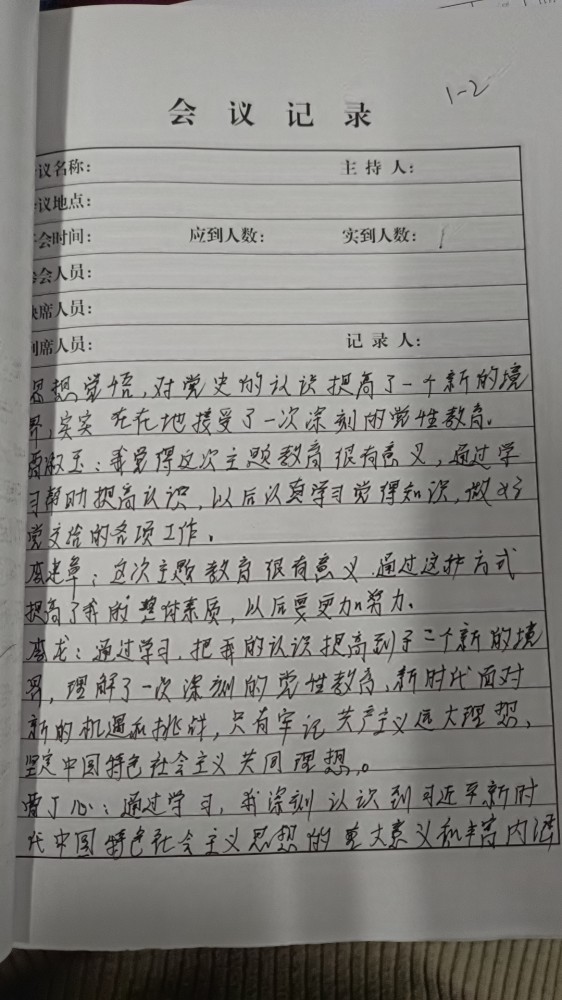 1-2
会议记录
议名称： 主持人：
议地点：
会时间： 应到人数： 实到人数：
会人员：
席人员：
席人员： 记录人：
思想觉悟，对党史的认识提高了一个新的境
界，实实在在地接受了一次深刻的党性教育。
雷淑玉：我觉得这次主题教育很有意义，通过学
习帮助提高认识，以后认真学习党得知识，做好
党交给的各项工作。
李建章：这次主题教育很有意义，通过这种方式
提高了我的整体素质，以后要更加努力。
李龙：通过学习，把我的认识提高到了一个新的境
界，理解了一次深刻的党性教育，新时代面对
新的机遇和挑战，只有牢记共产主义远大理想、
坚定中国特色社会主义共同理想。
雷丁心：通过学习，我深刻认识到习近平新时
代中国特色社会主义思想的重大意义和丰富内涵